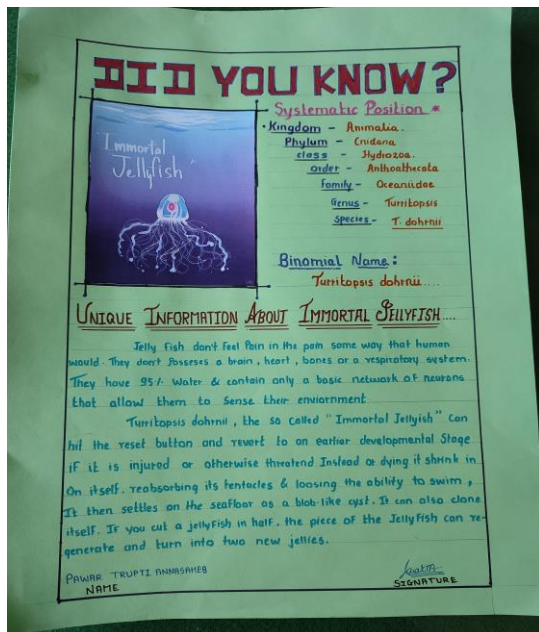 DID YOU KNOW?
"Immortal
Jellyfish"
Systematic Position *
• Kingdom - Animalia.
Phylum - Cnidaria
class - Hydrozoa.
order - Anthoathecata
Family - Oceaniidae
Genus - Turritopsis
Species - T. dohrnii
Binomial Name :
Turritopsis dohrnii....
UNIQUE INFORMATION ABOUT IMMORTAL JELLYFISH....
Jelly fish don't feel Pain in the pain same way that human
would. They don't Posseses a brain, heart, bones or a respiratory system.
They have 95% Water & contain only a basic network of neurons
that allow them to Sense their enviornment
Turritopsis dohrnii, the so called "Immortal Jellyish" Can
hit the reset button and revert to an earlier developmental Stage
if it is injured or otherwise threatend Instead or dying it shrink in
On itself. reabsorbing its tentacles & loosing the ability to swim,
It then settles on the seafloor as a blob-like cyst. It can also clone
itself. If you cut a jellyfish in half, the piece of the Jellyfish can re-
generate and turn into two new jellies.
PAWAR TRUPTI ANNASAHEB
NAME
SIGNATURE